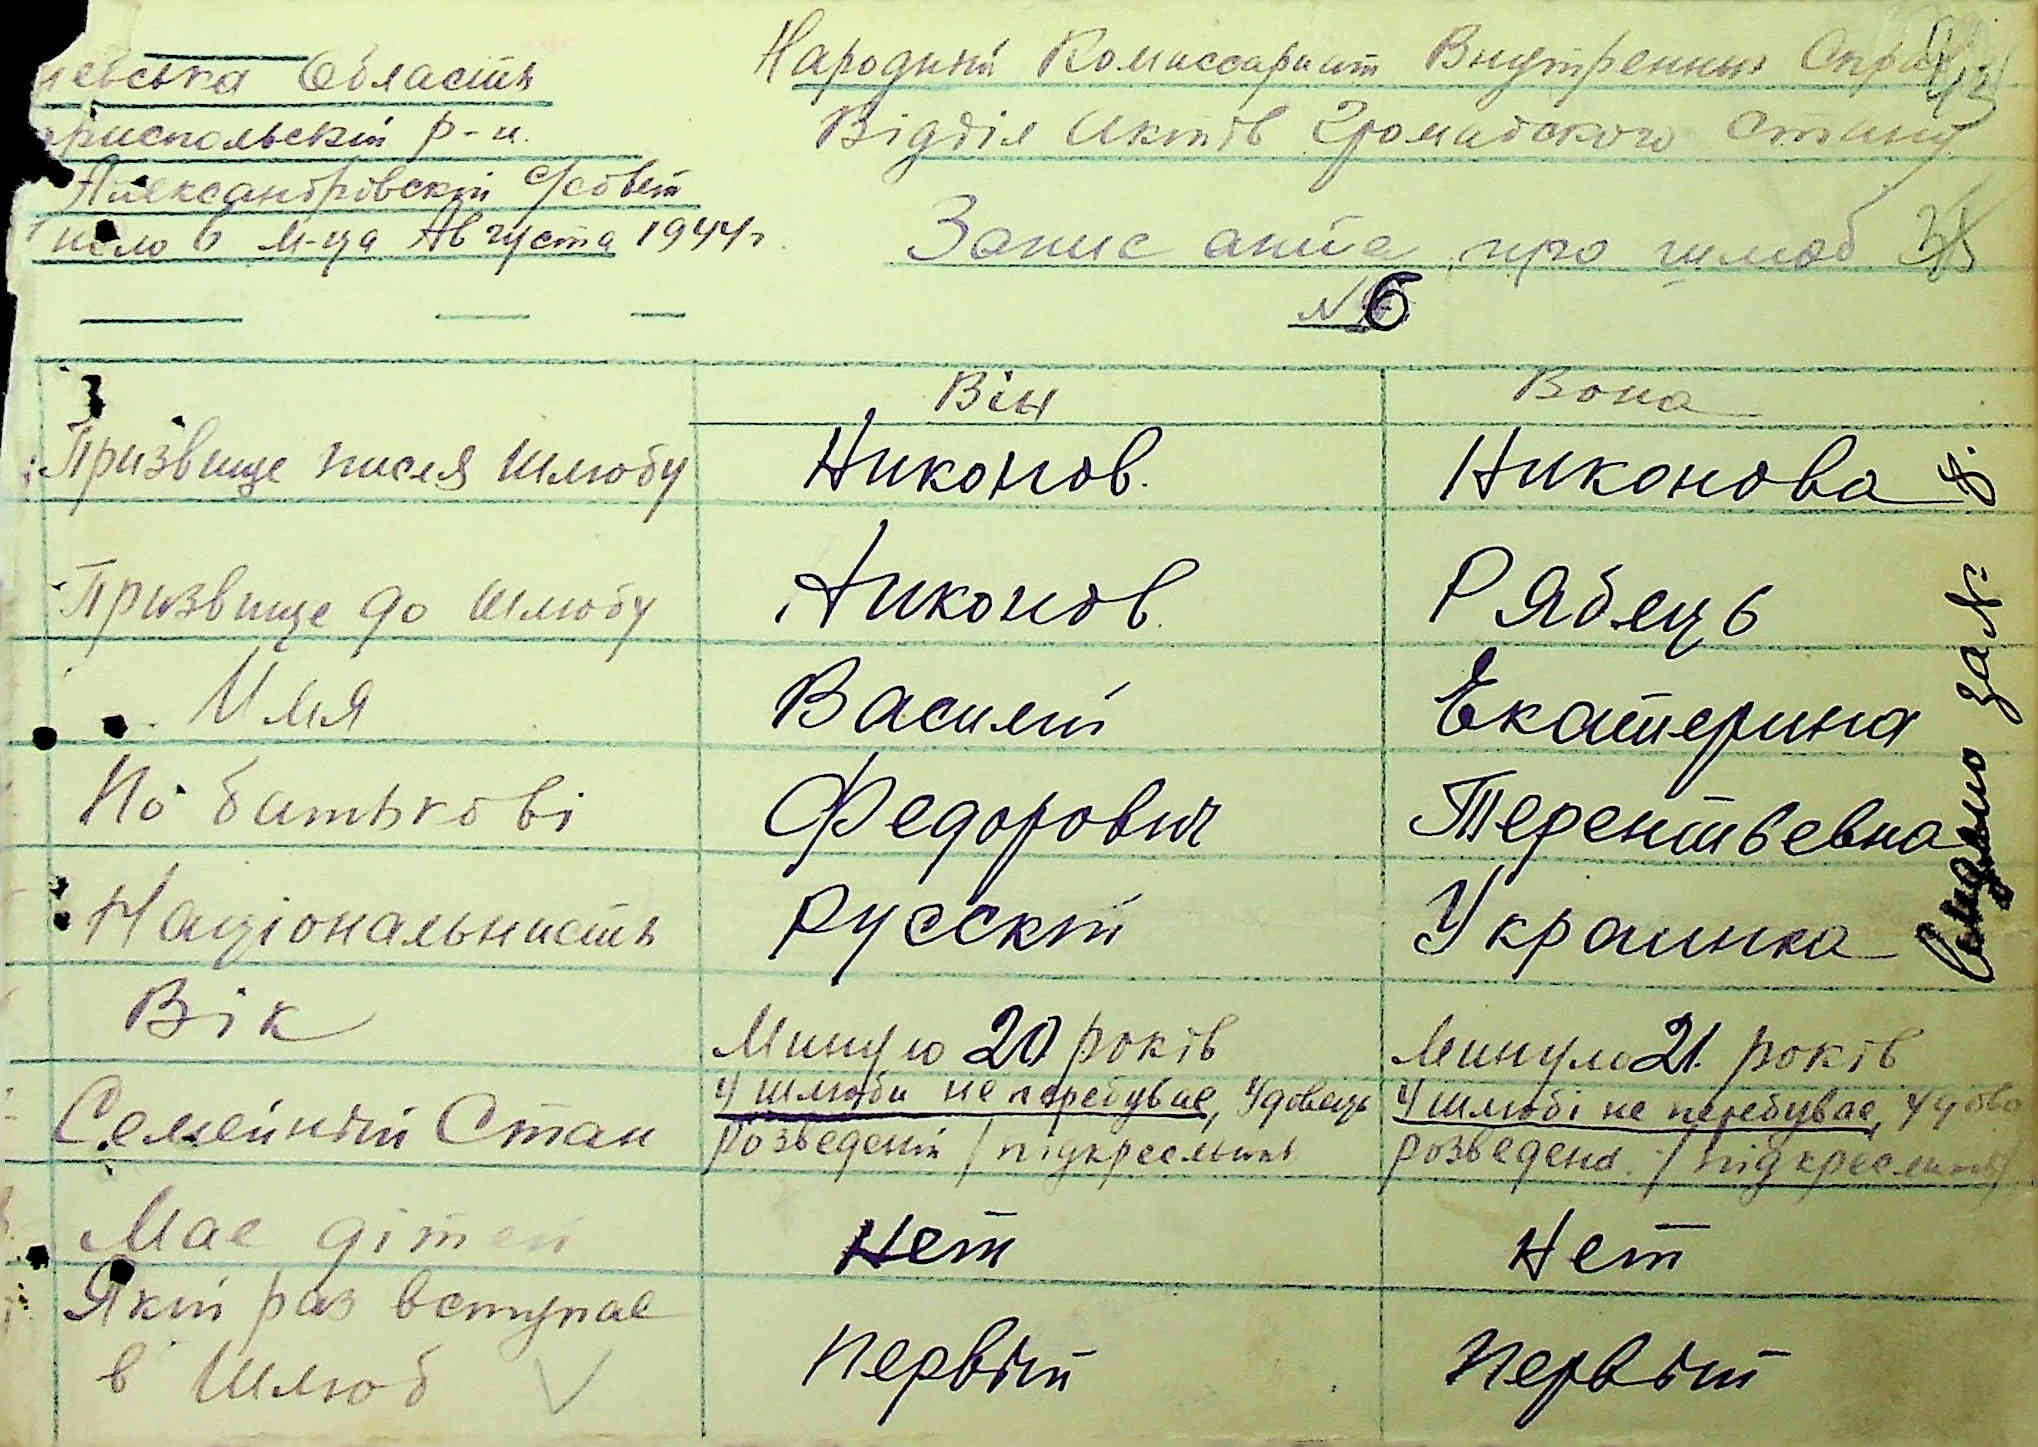 иевська Область
ариспольскій р-н.
Александровскій С/совет
число 6 м-ца Августа 1944 г.
Народній Комиссариат Внутренних Справ
Відділ Актів Громадского Стану
Запис акта про шлюб
№ 6
Він Вона
Призвище писля шлюбу Никонов. Никонова
Призвище до шлюбу Никонов. Рябець
Имя Василій Екатерина
По батькові Федорович Терентьевна
Національнисть Русскій Украинка
Вік Минуло 20 років Минуло 21. років
Семейній Стан У шлюби не перебувае, Удовець У шлюбі не перебувае, Удова
Розведений / підкреслить Розведена / підкреслить /
Мае дітей Нет Нет
Якій раз вступае Первій Первій
в Шлюб
за №